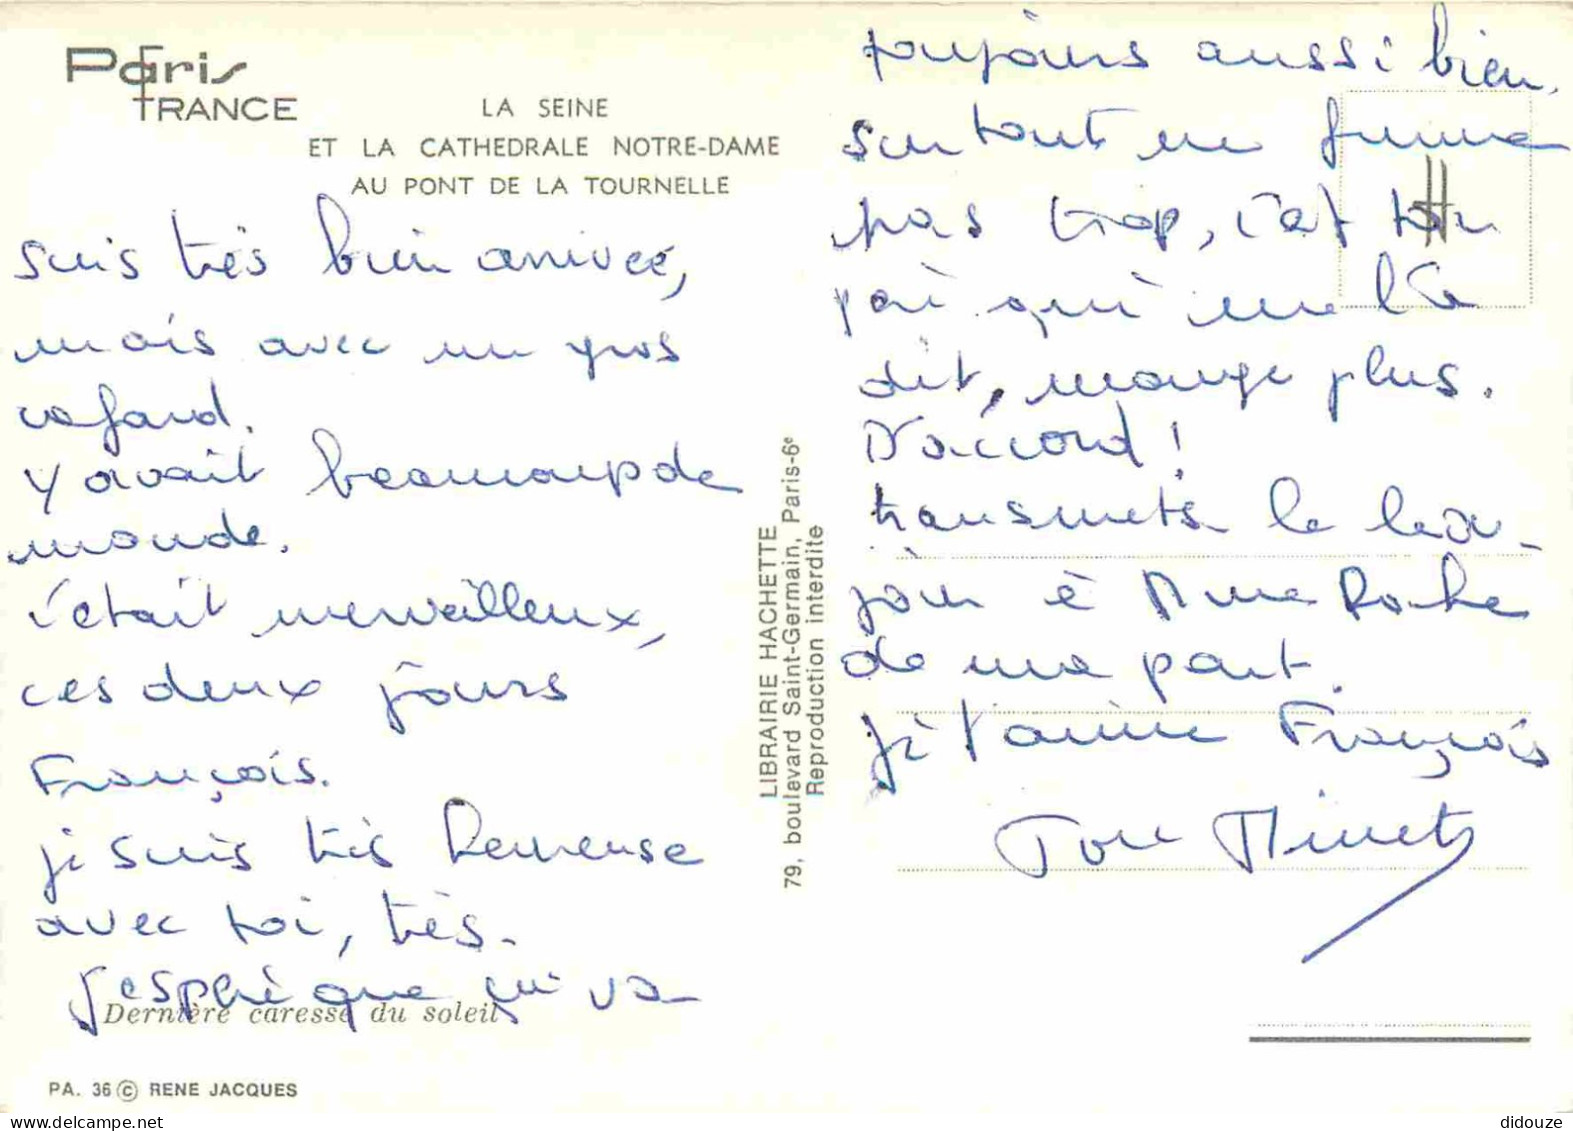 Paris
FRANCE
LA SEINE
ET LA CATHEDRALE NOTRE-DAME
AU PONT DE LA TOURNELLE
suis très bien arrivée,
mais avec un gros
cafard.
Y avait beaucoup de
monde.
c'était merveilleux,
ces deux jours
François.
je suis très heureuse
avec toi, très.
J'espère que ça va
Dernière caresse du soleil
PA. 36 © RENE JACQUES
LIBRAIRIE HACHETTE
79, boulevard Saint-Germain, Paris-6e
Reproduction interdite
toujours aussi bien,
surtout ne fume
pas trop, c'est ton
qui me l'a
dit, mange plus.
D'accord !
transmets le bon-
jour à Mme Roche
de ma part.
je t'aime François
Ton Minet
didouze